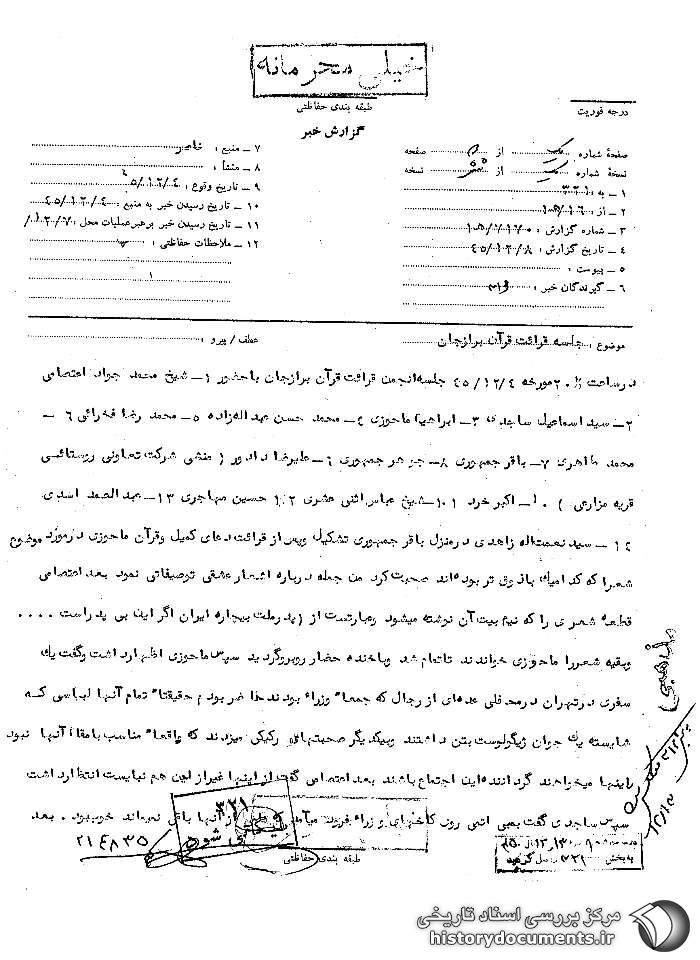 خیلی محرمانه
طبقه بندی حفاظتی
درجه فوریت
گزارش خبر
صفحهٔ شماره از صفحه
نسخهٔ شماره از شش نسخه
۱ ـ به : ۳۲۱
۲ ـ از : ۱۶/ه۱
۳ ـ شماره گزارش :
۴ ـ تاریخ گزارش : ۴۵/۱۲/۸
۵ ـ پیوست :
۶ ـ گیرندگان خبر :
۷ ـ منبع :
۸ ـ منشأ :
۹ ـ تاریخ وقوع : ۴۵/۱۲/۴
۱۰ ـ تاریخ رسیدن خبر به منبع : ۴۵/۱۲/۴
۱۱ ـ تاریخ رسیدن خبر برهبر عملیات محل : ۱۲/۷/
۱۲ ـ ملاحظات حفاظتی :
موضوع : جلسه قرائت قرآن برازجان
عطف / پیرو :
درساعت ۲۰ مورخه ۴۵/۱۲/۴ جلسه انجمن قرائت قرآن برازجان باحضور ۱ـ شیخ محمد جواد اعتصامی
۲ـ سید اسماعیل ساجدی ۳ـ ابراهیم ماحوزی ۴ـ محمد حسن عبداله زاده ۵ـ محمد رضا فخرائی ۶ ـ
محمد طاهری ۷ـ باقر جمهوری ۸ـ جوهر جمهوری ۹ـ علیرضا دادور ( منشی شرکت تعاونی روستائی
قریه مزارعی ) ۱۰ـ اکبر خرد ۱۱ـ شیخ عباس اثنی عشری ۱۲ حسین مهاجری ۱۳ـ عبدالصمد اسدی
۱۴ ـ سید نعمت اله زاهدی درمنزل باقر جمهوری تشکیل وپس از قرائت دعای کمیل وقرآن ماحوزی درمورد موضوع
شعرا که کدامیک باذوق تر بوده اند صحبت کرد من جمله درباره اشعار عشقی توصیفاتی نمود بعد اعتصامی
قطعه شعری را که نیم بیت آن نوشته میشود وعبارتست از ( پدر ملت بیچاره ایران اگر این بی پدر است ....
وبقیه شعررا ماحوزی خواندند تاتمام شد وباخنده حضار روبروگردید سپس ماحوزی اظهار داشت وگفت یک
سفری درتهران درمحفلی عده ای از رجال که جمعا" وزراء بودند حاضر بودم حقیقتا" تمام آنها لباسی که
شایسته یک جوان ژیگولوست بتن داشتند وبیکدیگر صحبتهای رکیکی میزدند که واقعا" مناسب بامقام آنها نبود
واینها میخواهند گرداننده این اجتماع باشند بعد اعتصامی گفت از اینها غیراز این هم نبایست انتظار داشت
سپس ساجدی گفت بمبی اتمی روی کاخهای وزراء فرود میآمد از آنها باقی نمیماند خوب بود . بعد
۳۲۱
بایگانی شود
۲۱۴۸۳۵
طبقه بندی حفاظتی
به بخش ۳۲۱ واصل گردید
مرکز بررسی اسناد تاریخی
historydocuments.ir